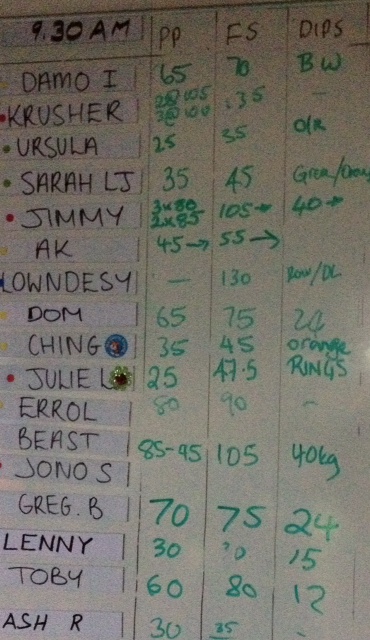 9.30 AM PP FS DIPS
DAMO I 65 70 BW
KRUSHER 2@105 135 -
3@100
URSULA 25 35 O/R
SARAH LJ 35 45 Green/
JIMMY 3x80 105→ 40→
2x85
AK 45→ 55→
LOWNDESY - 130 Row/DL
DOM 65 75 24
CHING 35 45 orange
JULIE L 25 47.5 RINGS
ERROL 80 90 -
BEAST 85-95 105 40kg
JONO S
GREG.B 70 75 24
LENNY 30 15
TOBY 60 80 12
ASH R 30 35 -